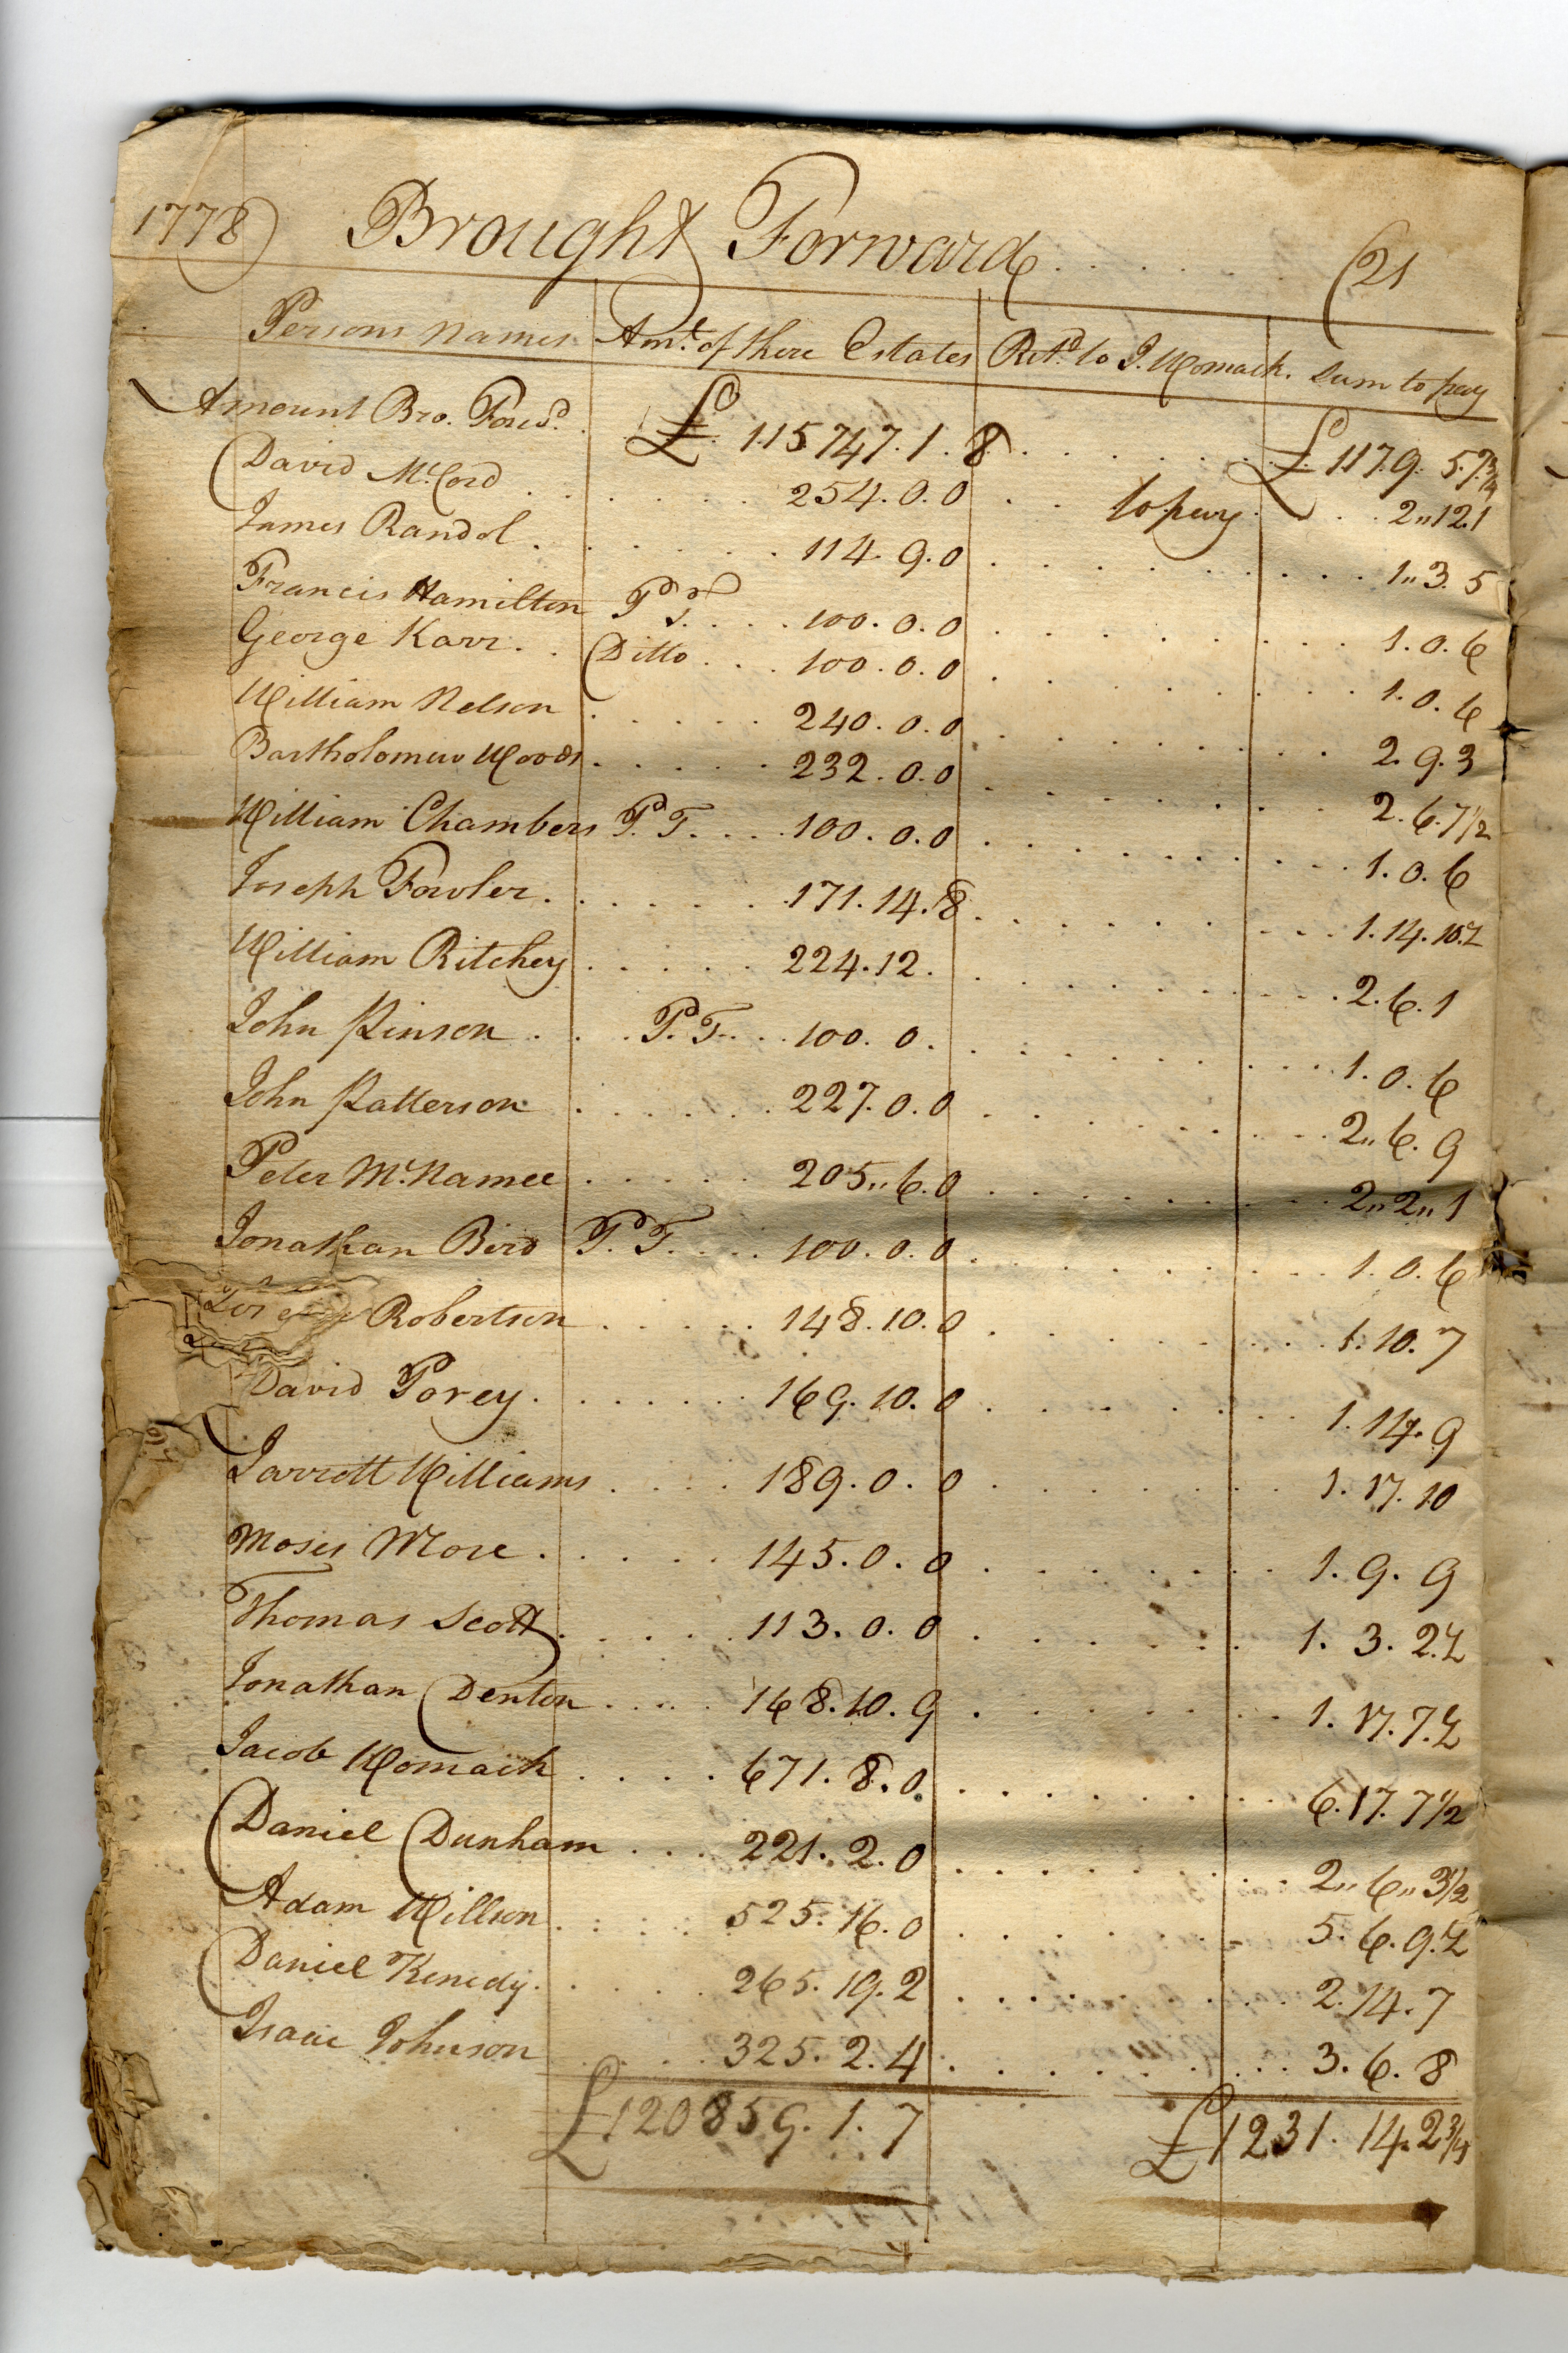 1778 Brought Forward . . . . . . (21
Persons Names Amt. of there Estates Retd. to J. Womack. Sum to pay
Amount Bro. Forwd. £ 115747.1.8 . . . . . . £ 1179. 5.7 3/4
David McCord . . . . . . 254.0.0 . . to pay . . . 2"12.1
James Randol . . . . . . 114.9.0 . . . . . . 1"3.5
Francis Hamilton P T. . . . 100.0.0 . . . . . . 1.0.6
George Karr . . Ditto . . . 100.0.0 . . . . . . 1.0.6
William Nelson . . . . . 240.0.0 . . . . . . 2.9.3
Bartholomew Woods . . . . . 232.0.0 . . . . . . 2.6.7 1/2
William Chambers P. T. . . . 100.0.0 . . . . . . 1.0.6
Joseph Fowler . . . . . . 171.14.8 . . . . . . 1.14.10.½
William Ritchey . . . . . 224.12. . . . . . . 2.6.1
John Pinson . . . P. T. . . 100.0. . . . . . . 1.0.6
John Patterson . . . . . . 227.0.0 . . . . . . 2"6.9
Peter McNamee . . . . . 205"6.0 . . . . . . 2"2"1
Jonathan Bird P. T. . . . 100.0.0 . . . . . . 1.0.6
Robertson . . . . . 148.10.0 . . . . . . 1.10.7
David Porey . . . . . . 169.10.0 . . . . . . 1.14.9
Jarrott Williams . . . . 189.0.0 . . . . . . 1.17.10
Moses More . . . . . 145.0.0 . . . . . . 1.9.9
Thomas Scott . . . . . 113.0.0 . . . . . . 1.3.2.½
Jonathan Denton . . . . 168.10.9 . . . . . . 1.17.7.½
Jacob Womack . . . . 671.8.0 . . . . . . 6.17.7 1/2
Daniel Dunham . . . 221.2.0 . . . . . . 2"6"3 1/2
Adam Willson . . . . 525.16.0 . . . . . . 5.6.9.½
Daniel Kenedy . . . . . 265.19.2 . . . . . . 2.14.7
Isaac Johnson . . . . 325.2.4 . . . . . . 3.6.8
£120859.1.7 £1231.14.2 3/4